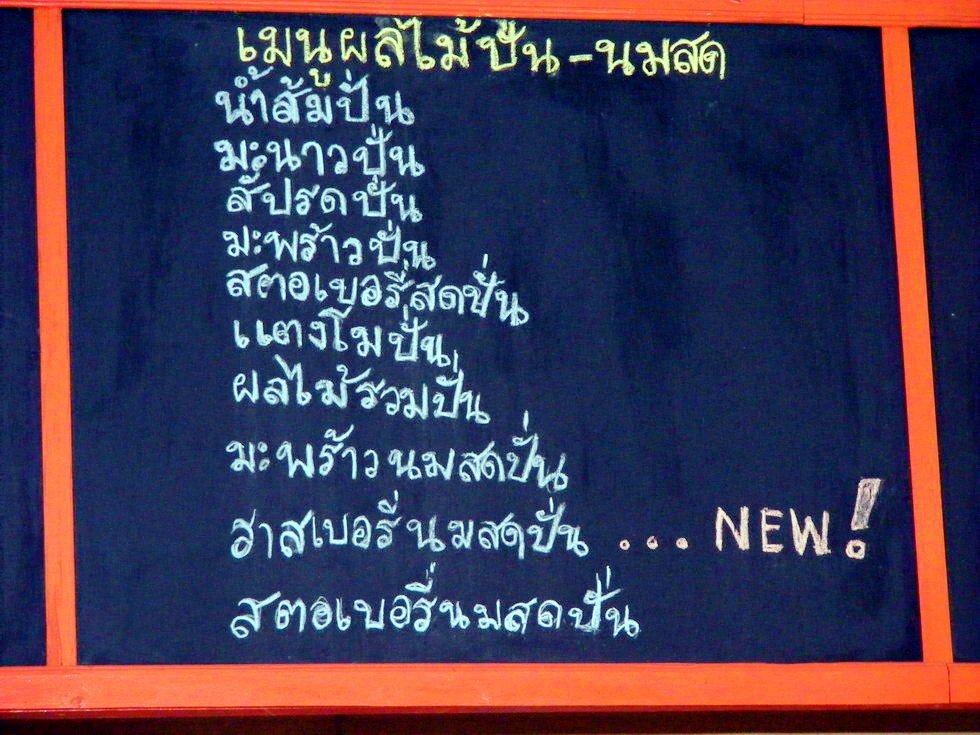 เมนูผลไม้ปั่น-นมสด
น้ำส้มปั่น
มะนาวปั่น
สัปรดปั่น
มะพร้าวปั่น
สตอเบอรี่สดปั่น
แตงโมปั่น
ผลไม้รวมปั่น
มะพร้าวนมสดปั่น
ราสเบอรี่นมสดปั่น ... NEW!
สตอเบอรี่นมสดปั่น